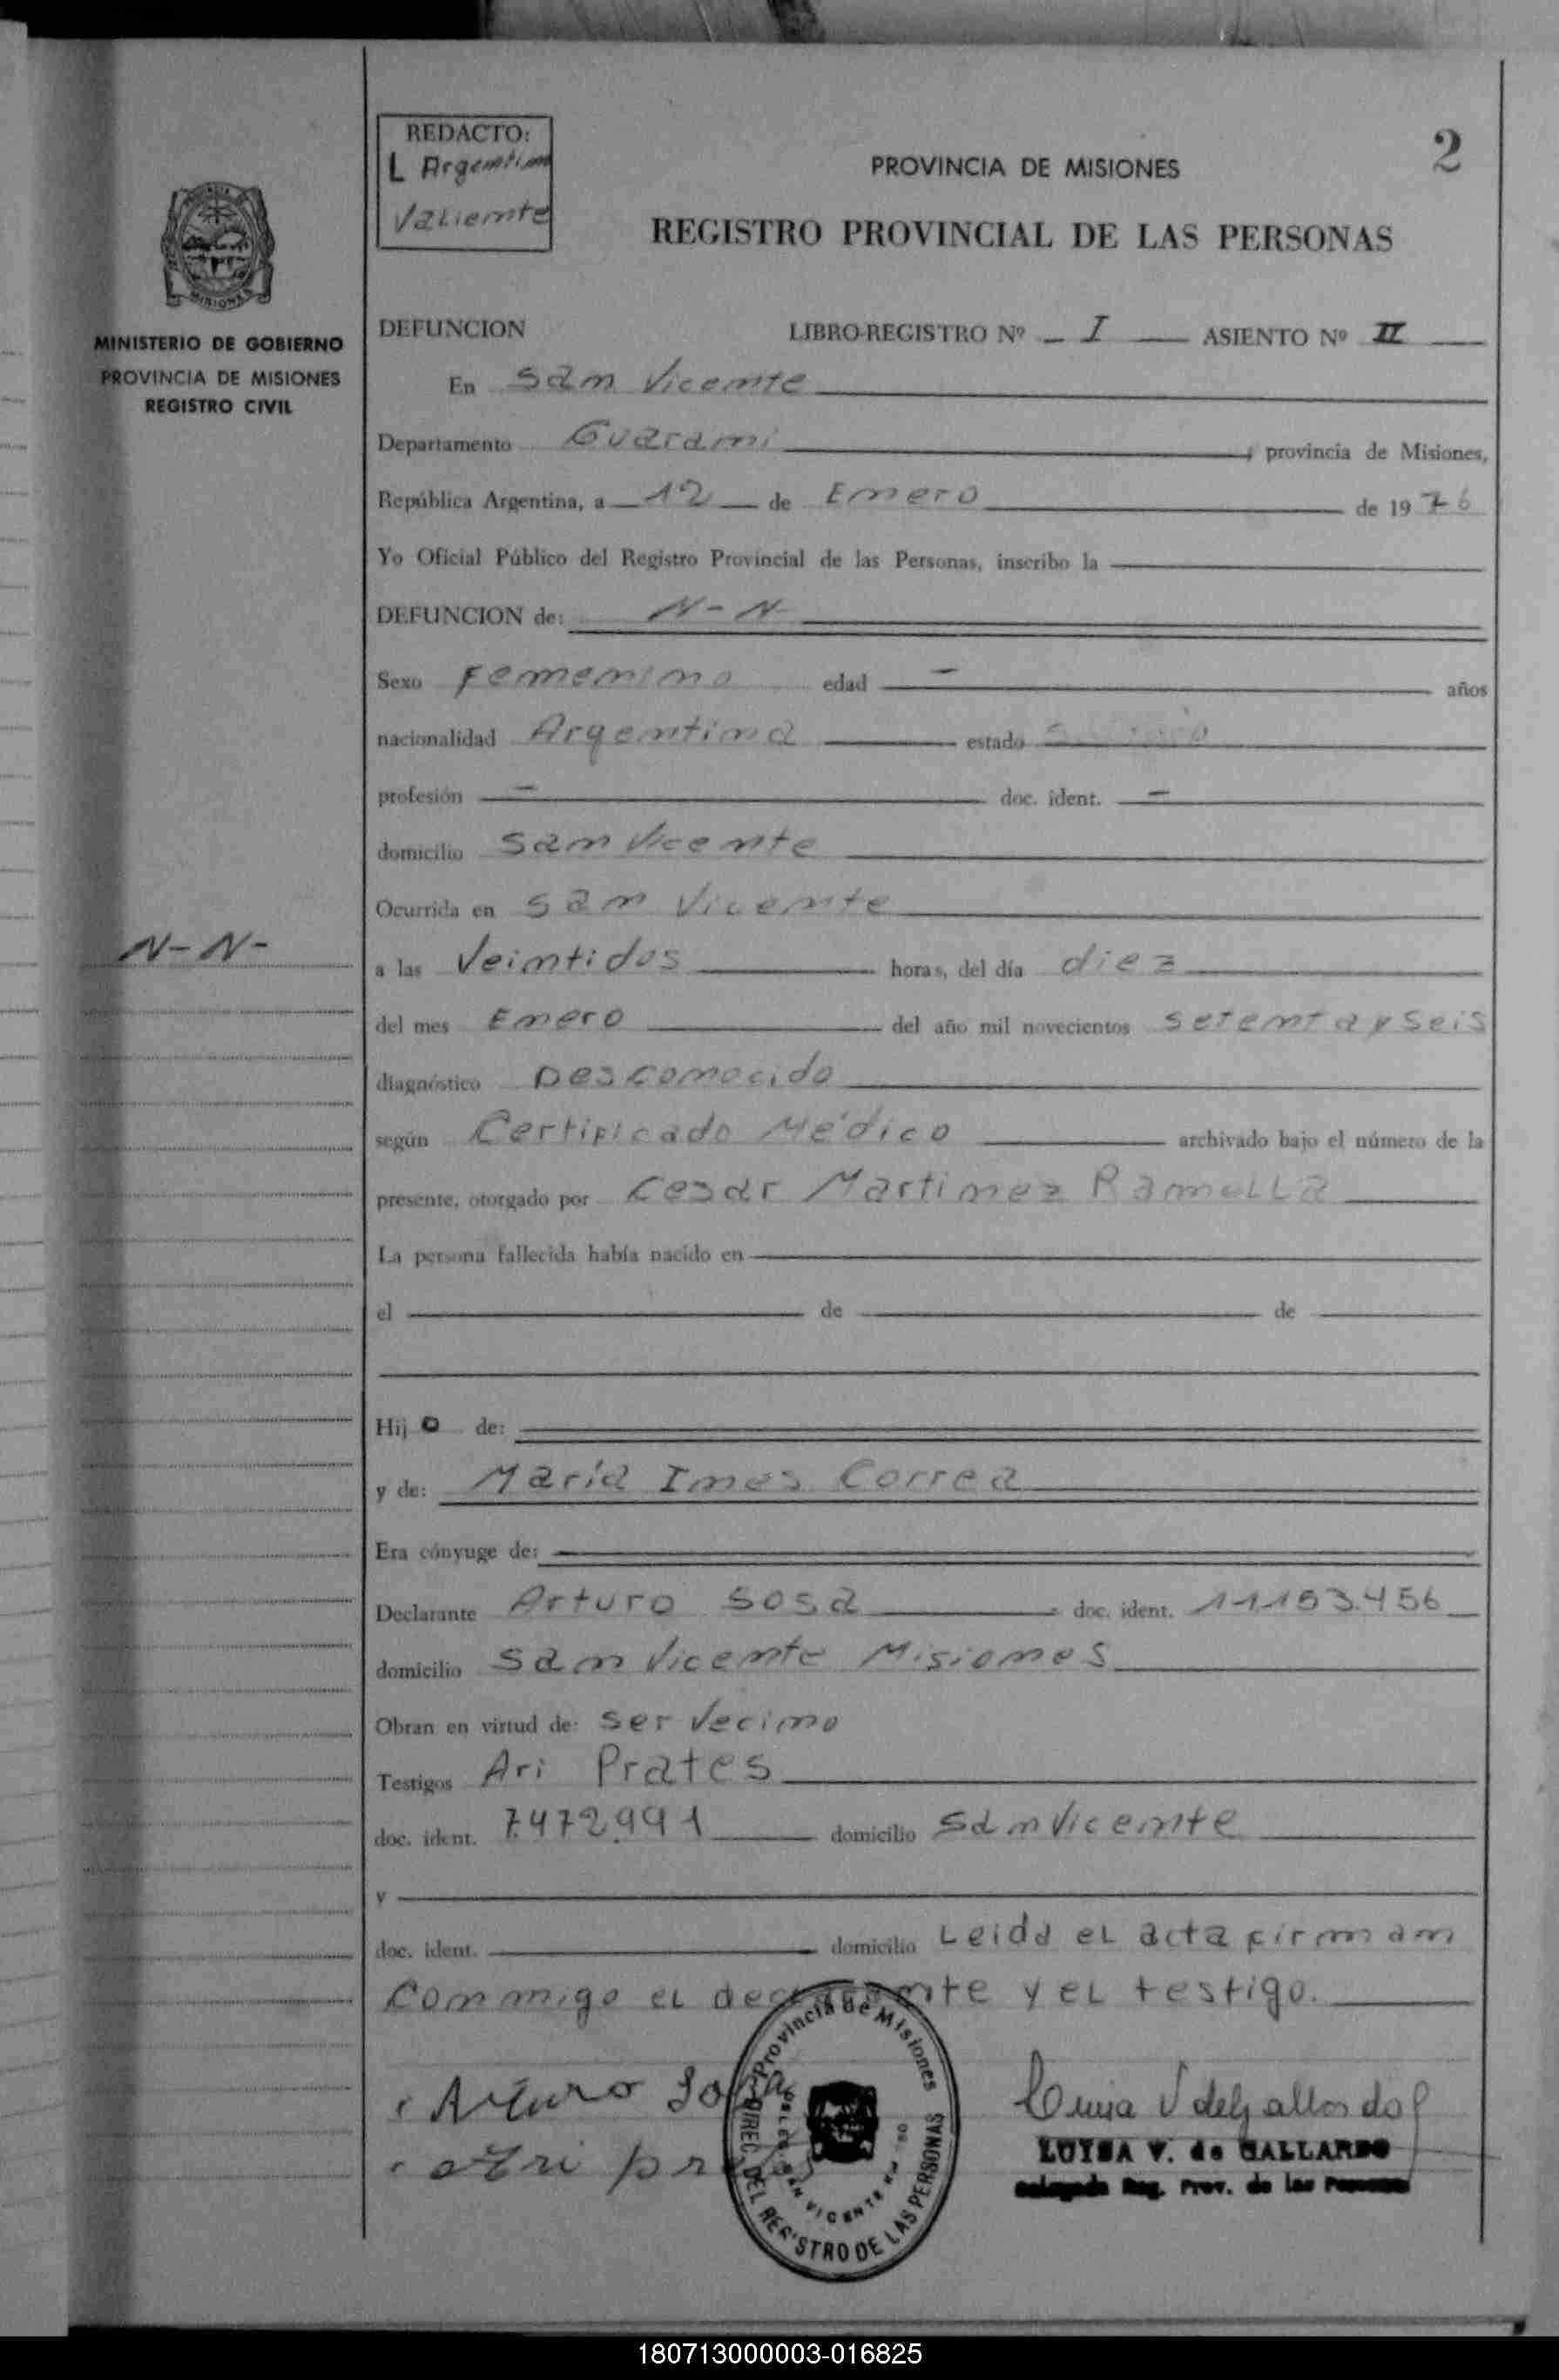 REDACTO:
L Argentina
Valiente
2
PROVINCIA DE MISIONES
REGISTRO PROVINCIAL DE LAS PERSONAS
MISIONES
MINISTERIO DE GOBIERNO
PROVINCIA DE MISIONES
REGISTRO CIVIL
DEFUNCION LIBRO-REGISTRO Nº I ASIENTO Nº II
En San Vicente
Departamento Guarani, provincia de Misiones,
República Argentina, a 12 de Enero de 1976
Yo Oficial Público del Registro Provincial de las Personas, inscribo la
DEFUNCION de: N-N
Sexo Femenino edad - años
nacionalidad Argentina estado
profesión - doc. ident. -
domicilio San Vicente
Ocurrida en San Vicente
N-N-
a las Veintidos horas, del día diez
del mes Enero del año mil novecientos setenta y seis
diagnóstico Desconocido
según Certificado Médico archivado bajo el número de la
presente, otorgado por Cesar Martinez Ramella
La persona fallecida había nacido en
el de de
Hijo de:
y de: María Ines Correa
Era cónyuge de:
Declarante Arturo Sosa doc. ident. 11.153.456
domicilio San Vicente Misiones
Obran en virtud de: ser Vecino
Testigos Ari Prates
doc. ident. 7.472.991 domicilio San Vicente
y
doc. ident. domicilio Leida el acta firman
conmigo el declarante y el testigo.
Arturo Sosa
Provincia de Misiones
DIREC. DEL REGISTRO DE LAS PERSONAS
SAN VICENTE
Luisa V de Gallardo
LUISA V. de GALLARDO
Delegada Reg. Prov. de las Personas
180713000003-016825